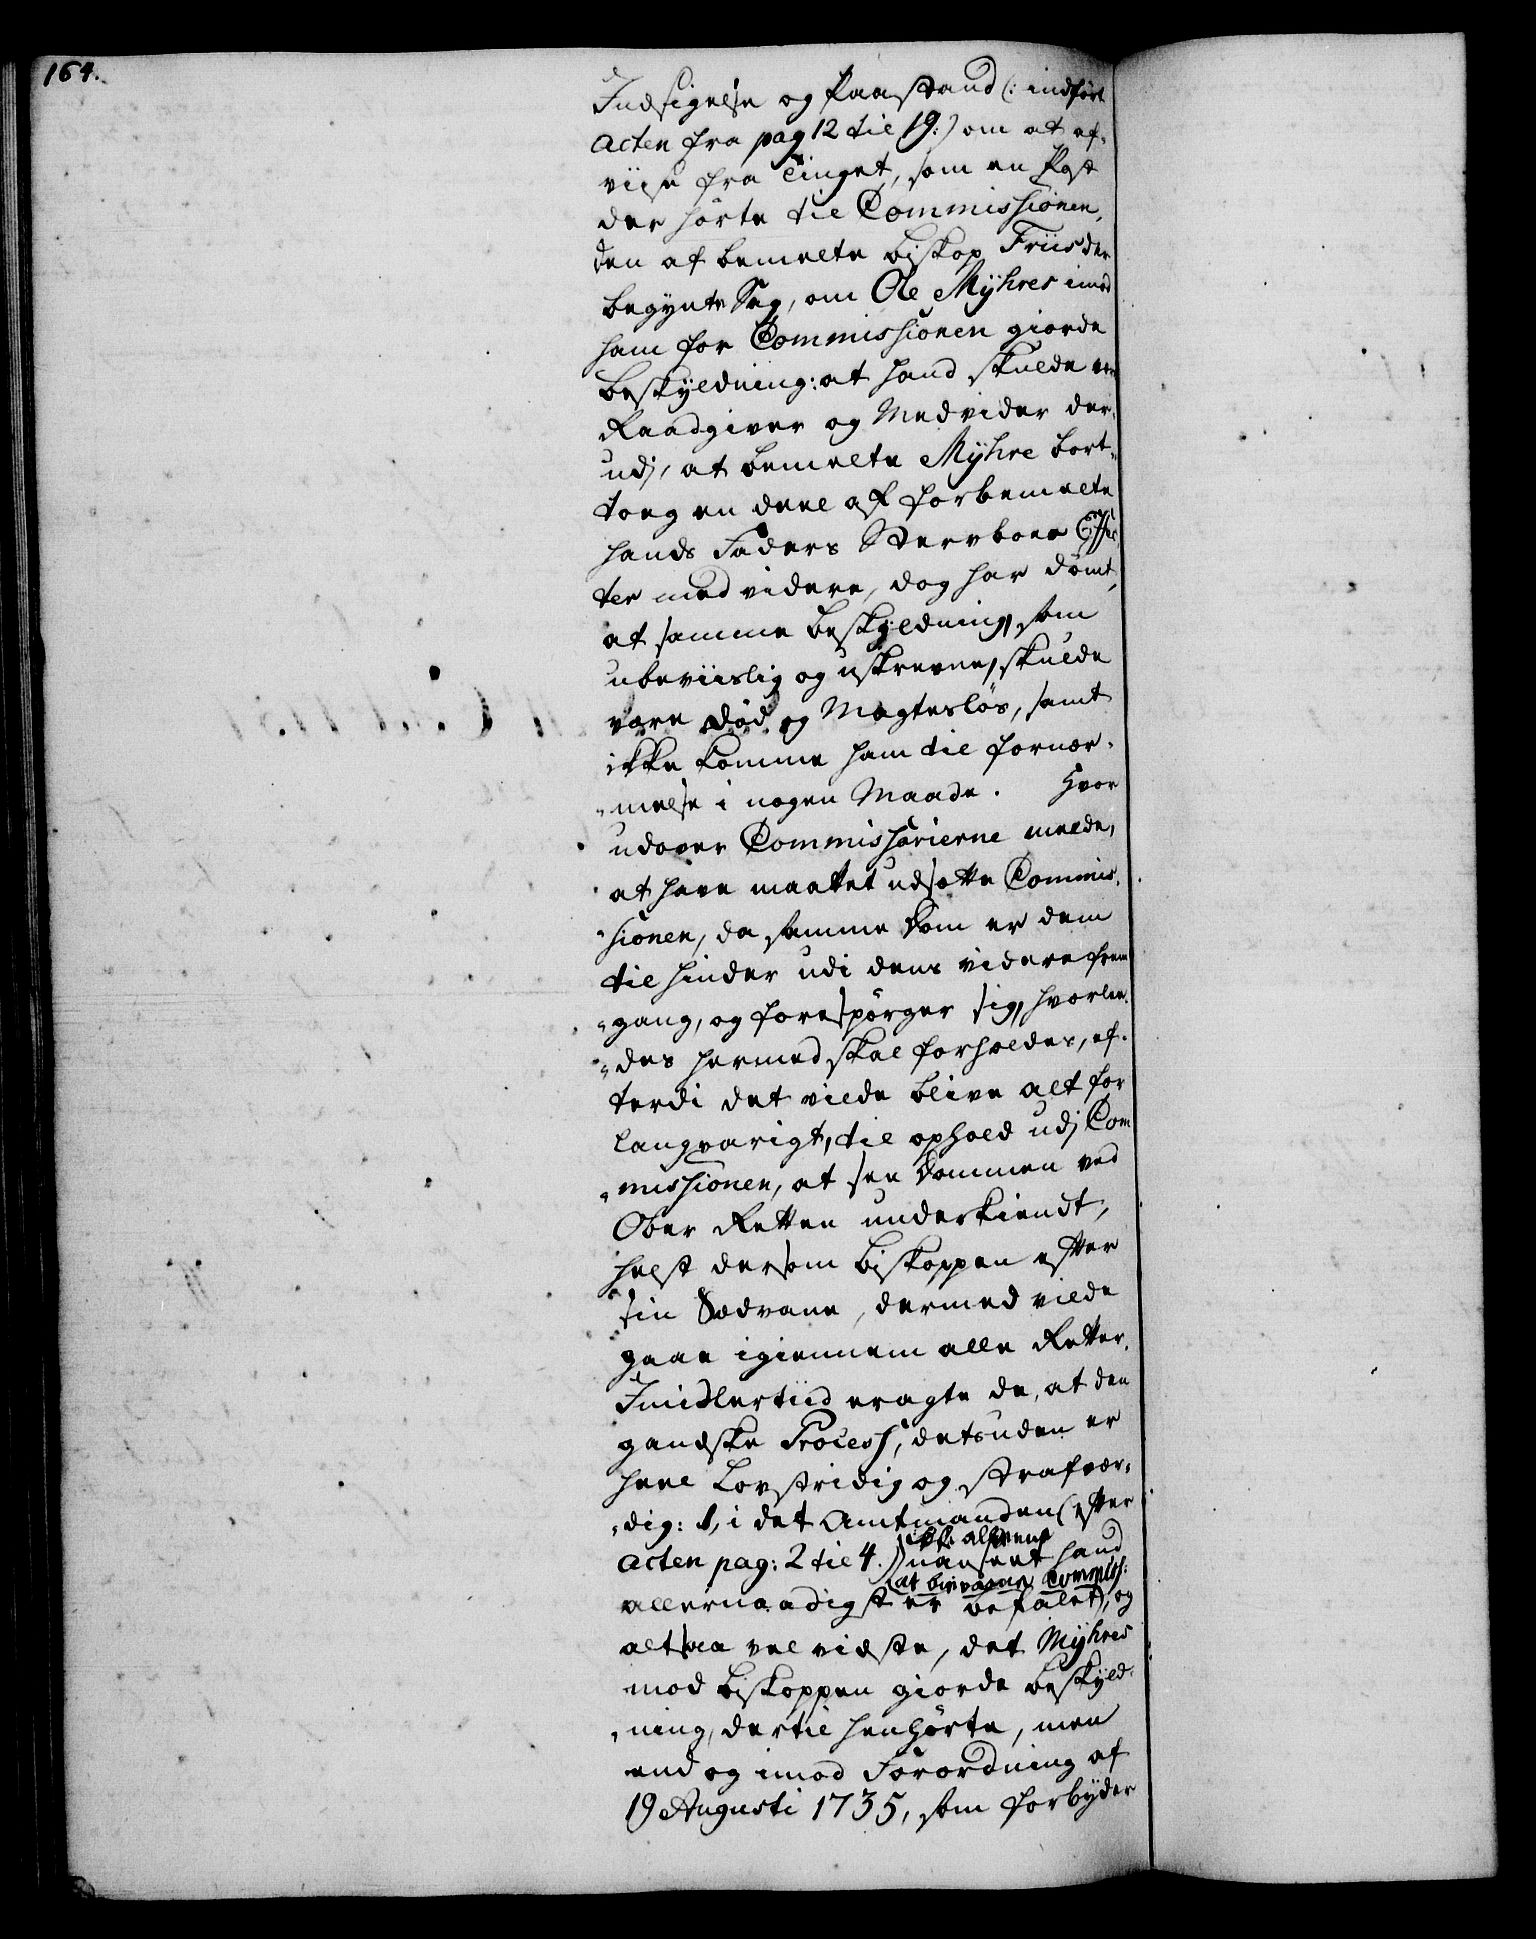 164.
Indsigelse og Paastand (: indført
Acten fra pag 12 til 19:) om at af-
viise fra Tinget, som en Post
der hørte til Commissionen,
den af bemelte Biskop Friis der
begynte Sag, om Ole Mÿhres imod
ham for Commissionen giorde
Beskyldning: at hand skulde være
Raadgiver og Medvider der-
udj, at bemelte Mÿhre bort-
toeg en deel af forbemelte
hands Faders Sterboes Effec-
ter med videre, dog har dømt,
at samme Beskyldning, som
ubeviislig og uskreven, skulde
være død og Magtesløs, samt
ikke komme ham til fornær-
melse i nogen Maade. Hvor
udover Commissarierne melde,
at have maattet udsætte Commis-
sionen, da samme Dom er dem
til Hinder udi dens videre frem
gang, og forespørger sig, hvorle-
des hermed skal forholdes, ef-
terdi det vilde blive alt for
langvarigt, til ophold udj Com
missionen, at see Dommen ved
Ober Retten underkiendt,
helst dersom Biskoppen efter
sin Sædvane, dermed vilde
gaae igiennem alle Retter.
Imidlertiid eragte de, at den
gandske Process, desuden er
heel Lovstridig og strafvær-
dig: 1, i det Amtmanden (efter
ikke alleene
Acten pag: 2 til 4.) uanseet hand
(at bievaane Commiss:
allernaadigst er befalet), og
altsaa vel vidste, det Mÿhres
mod Biskoppen giorde Beskyld-
ning, dertil henhørte, men
end og imod Forordning af
19 Augusti 1735, som forbÿder